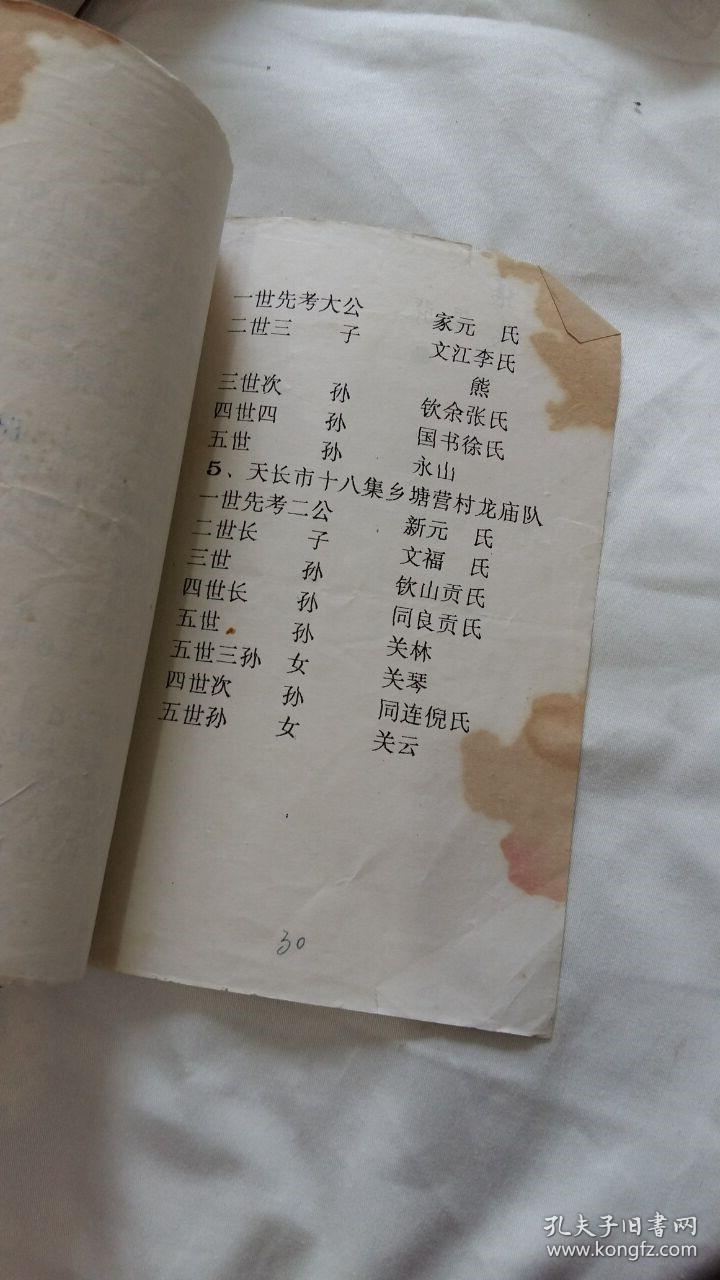 一世先考大公 家元 氏
二世三 子 文江李氏
熊
三世次 孙 钦余张氏
四世四 孙 国书徐氏
五世 孙 永山
5、天长市十八集乡塘营村龙庙队
一世先考二公 新元 氏
二世长 子 文福 氏
三世 孙 钦山贡氏
四世长 孙 同良贡氏
五世 孙 关林
五世三孙 女 关琴
四世次 孙 同连倪氏
五世孙 女 关云
30
孔夫子旧书网
www.kongfz.com